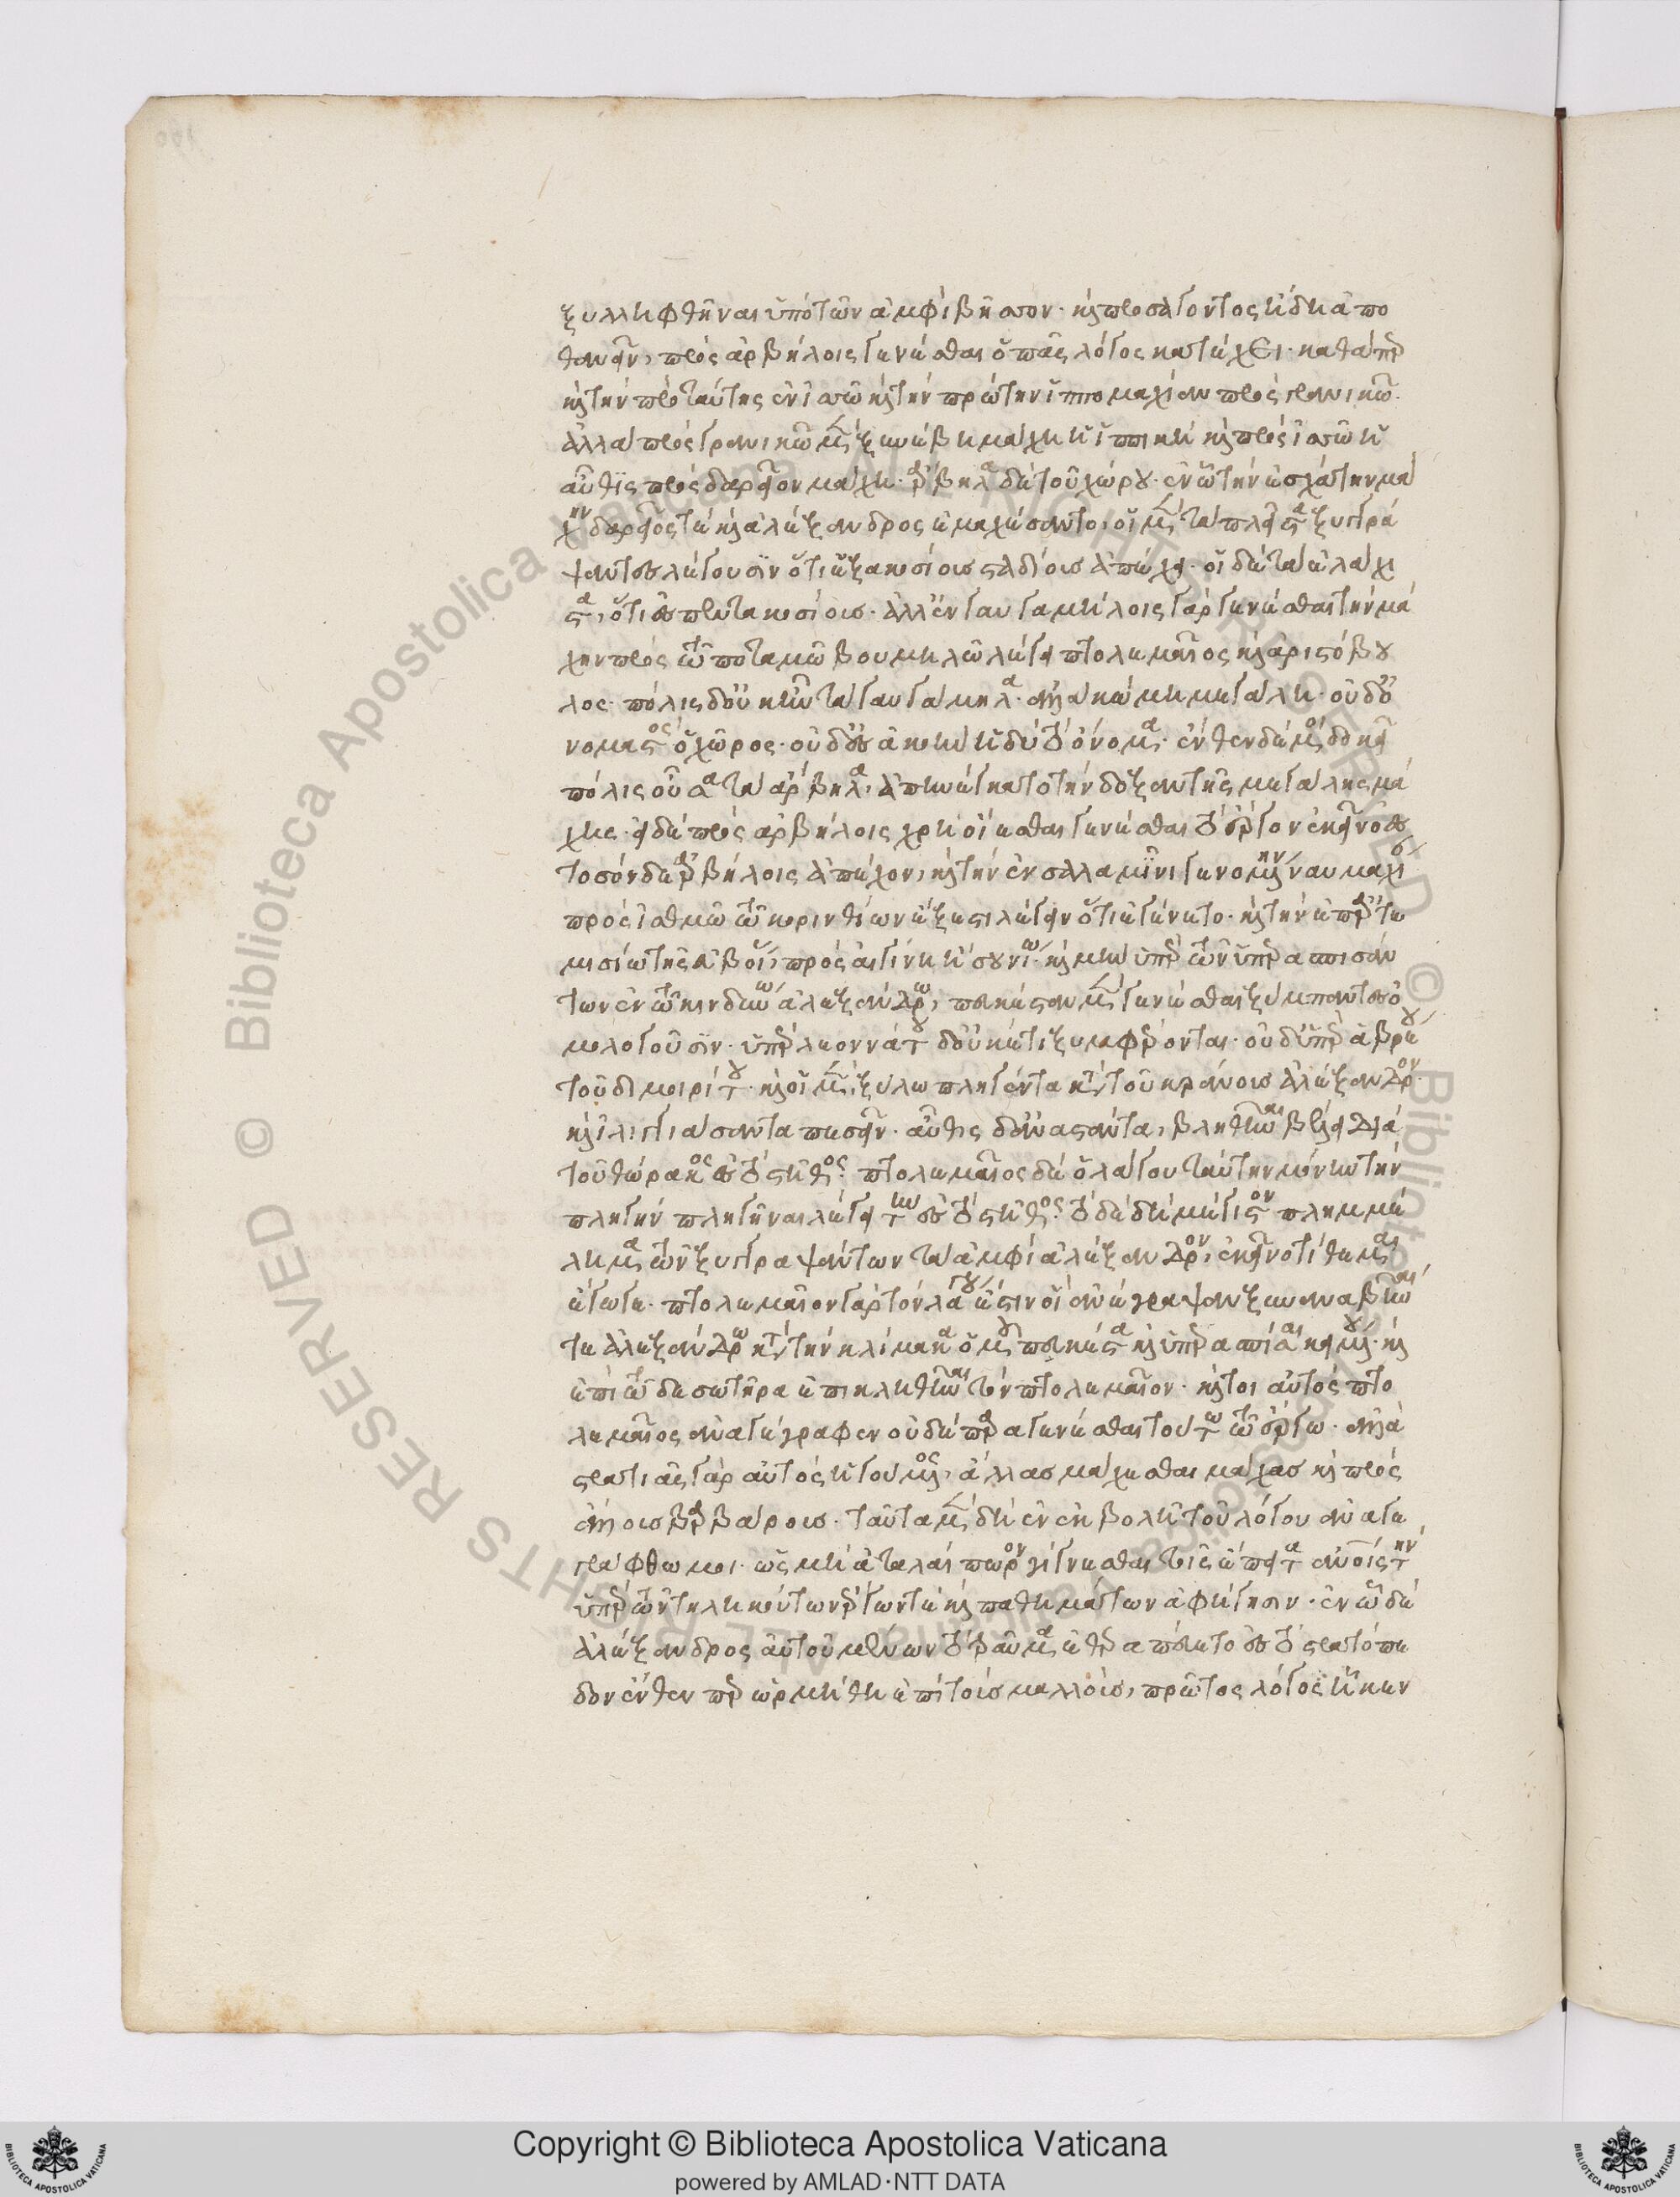 ξυλληφθῆναι ὑπὸ τῶν ἀμφὶ βῆσσον· καὶ προσάγοντος ἤδη ἀπο
θανεῖν, πρὸς ἀρβήλοις γενέσθαι ὁ πᾶς λόγος κατέχει· καθάπερ
καὶ τὴν πρὸ ταύτης ἐν ἰσσῶ καὶ τὴν πρώτην ἱππομαχίαν πρὸς γρανικῶ.
ἀλλὰ πρὸς γρανικῶ μὲν ξυνέβη μάχη ἡ ἱππικὴ καὶ πρὸς ἰσσῶ ἡ
αὖθις πρὸς δαρεῖον μάχη· ἄρβηλα δὲ τοῦ χώρου· ἐν ὧ τὴν ἐσχάτην μά
χην δαρεῖός τε καὶ ἀλέξανδρος ἐμαχέσαντο, οἱ μὲν τὰ πλεῖστα ξυγγρά
ψαντες λέγουσιν ὅτι ἑξακοσίους σταδίους ἀπέχει· οἱ δὲ τὰ ἐλάχι
στα, ὅτι ἐς πεντακοσίους· ἀλλ' ἐν γαυγαμήλοις γὰρ γενέσθαι τὴν μά
χην πρὸς τῶ ποταμῶ βουμήλω λέγει πτολεμαῖος καὶ ἀριστόβου
λος· πόλις δ' οὐκ ἦν τὰ γαυγάμηλα· ἀλλὰ κώμη μεγάλη· οὐδ' ὀ
νομαστὸς ὁ χῶρος· οὐδ' ἐς ἀκοὴν ἡδὺ τὸ ὄνομα· ἔνθεν δέ μοι δοκεῖ
πόλις οὖσα τὰ ἄρβηλα, ἀπηνέγκατο τὴν δόξαν τῆς μεγάλης μά
χης· εἰ δὲ πρὸς ἀρβήλοις χρὴ οἴεσθαι γενέσθαι τὸ ἔργον ἐκεῖνο ἐς
τοσόνδε ἀρβήλοις ἀπέχον, καὶ τὴν ἐν σαλαμῖνι γενομένην ναυμαχί
πρὸς ἰσθμῶ τῶ κορινθίων ἔξεστι λέγειν ὅτι ἐγένετο· καὶ τὴν ἐπ' ἀρτε
μισίω τῆς εὐβοίας, πρὸς αἰγίνη ἢ σουνίω· καὶ μὴν ὑπὲρ τῶν ὑπερασπισάν
των ἐν τῶ κινδύνω ἀλεξάνδρω, πευκέσταν μὲν γενέσθαι ξύμπαντες ὁ
μολογοῦσιν· ὑπὲρ λεοννάτου δ' οὐκέτι ξυμφέρονται· οὐδ' ὑπὲρ ἀβρέου
τοῦ διμοιρίτου· καὶ οἱ μὲν ξύλω πληγέντα κατὰ τοῦ κράνους ἀλέξανδρον
καὶ ἰλιγγιάσαντα πεσεῖν· αὖθις δ' ἀναστάντα, βληθῆναι βέλει διὰ
τοῦ θώρακος ἐς τὸ στῆθος· πτολεμαῖος δὲ ὁ λάγου ταύτην μόνην τὴν
πληγὴν πληγῆναι λέγει τὴν ἐς τὸ στῆθος· τὸ δὲ δὴ μέγιστον πλημμέ
λημα τῶν ξυγγραψάντων τὰ ἀμφὶ ἀλέξανδρον, ἐκεῖνο τίθεμαι
ἔγωγε· πτολεμαῖον γὰρ τὸν λάγου ἔστιν οἳ ἀνέγραψαν ξυναναβῆναί
τε ἀλεξάνδρω κατὰ τὴν κλίμακα ὁμοῦ πευκέστα καὶ ὑπερασπίσαι κειμένου· καὶ
ἐπὶ τῶδε σωτῆρα ἐπικληθῆναι τὸν πτολεμαῖον· καίτοι αὐτὸς πτο
λεμαῖος ἀναγέγραφεν οὐδὲ παραγενέσθαι τούτω τῶ ἔργω· ἀλλὰ
στρατιᾶς γὰρ αὐτὸς ἡγούμενος, ἄλλας μάχεσθαι μάχας καὶ πρὸς
ἄλλους βαρβάρους· ταῦτα μὲν δὴ ἐν ἐκβολῆ τοῦ λόγου ἀναγε
γράφθω μοι· ὡς μὴ ἀταλαίπωρον γίγνεσθαι τοῖς ἔπειτα ἀνθρώποις τὴν
ὑπὲρ τῶν τηλικούτων ἔργων τε καὶ παθημάτων ἀφήγησιν· ἐν ὧ δὲ
ἀλέξανδρος αὐτοῦ μένων τὸ τραῦμα ἐθεραπεύετο ἐς τὸ στρατόπε
δον ἔνθεν περ ὡρμήθη ἐπὶ τοὺς μαλλούς, πρῶτος λόγος ἧκεν